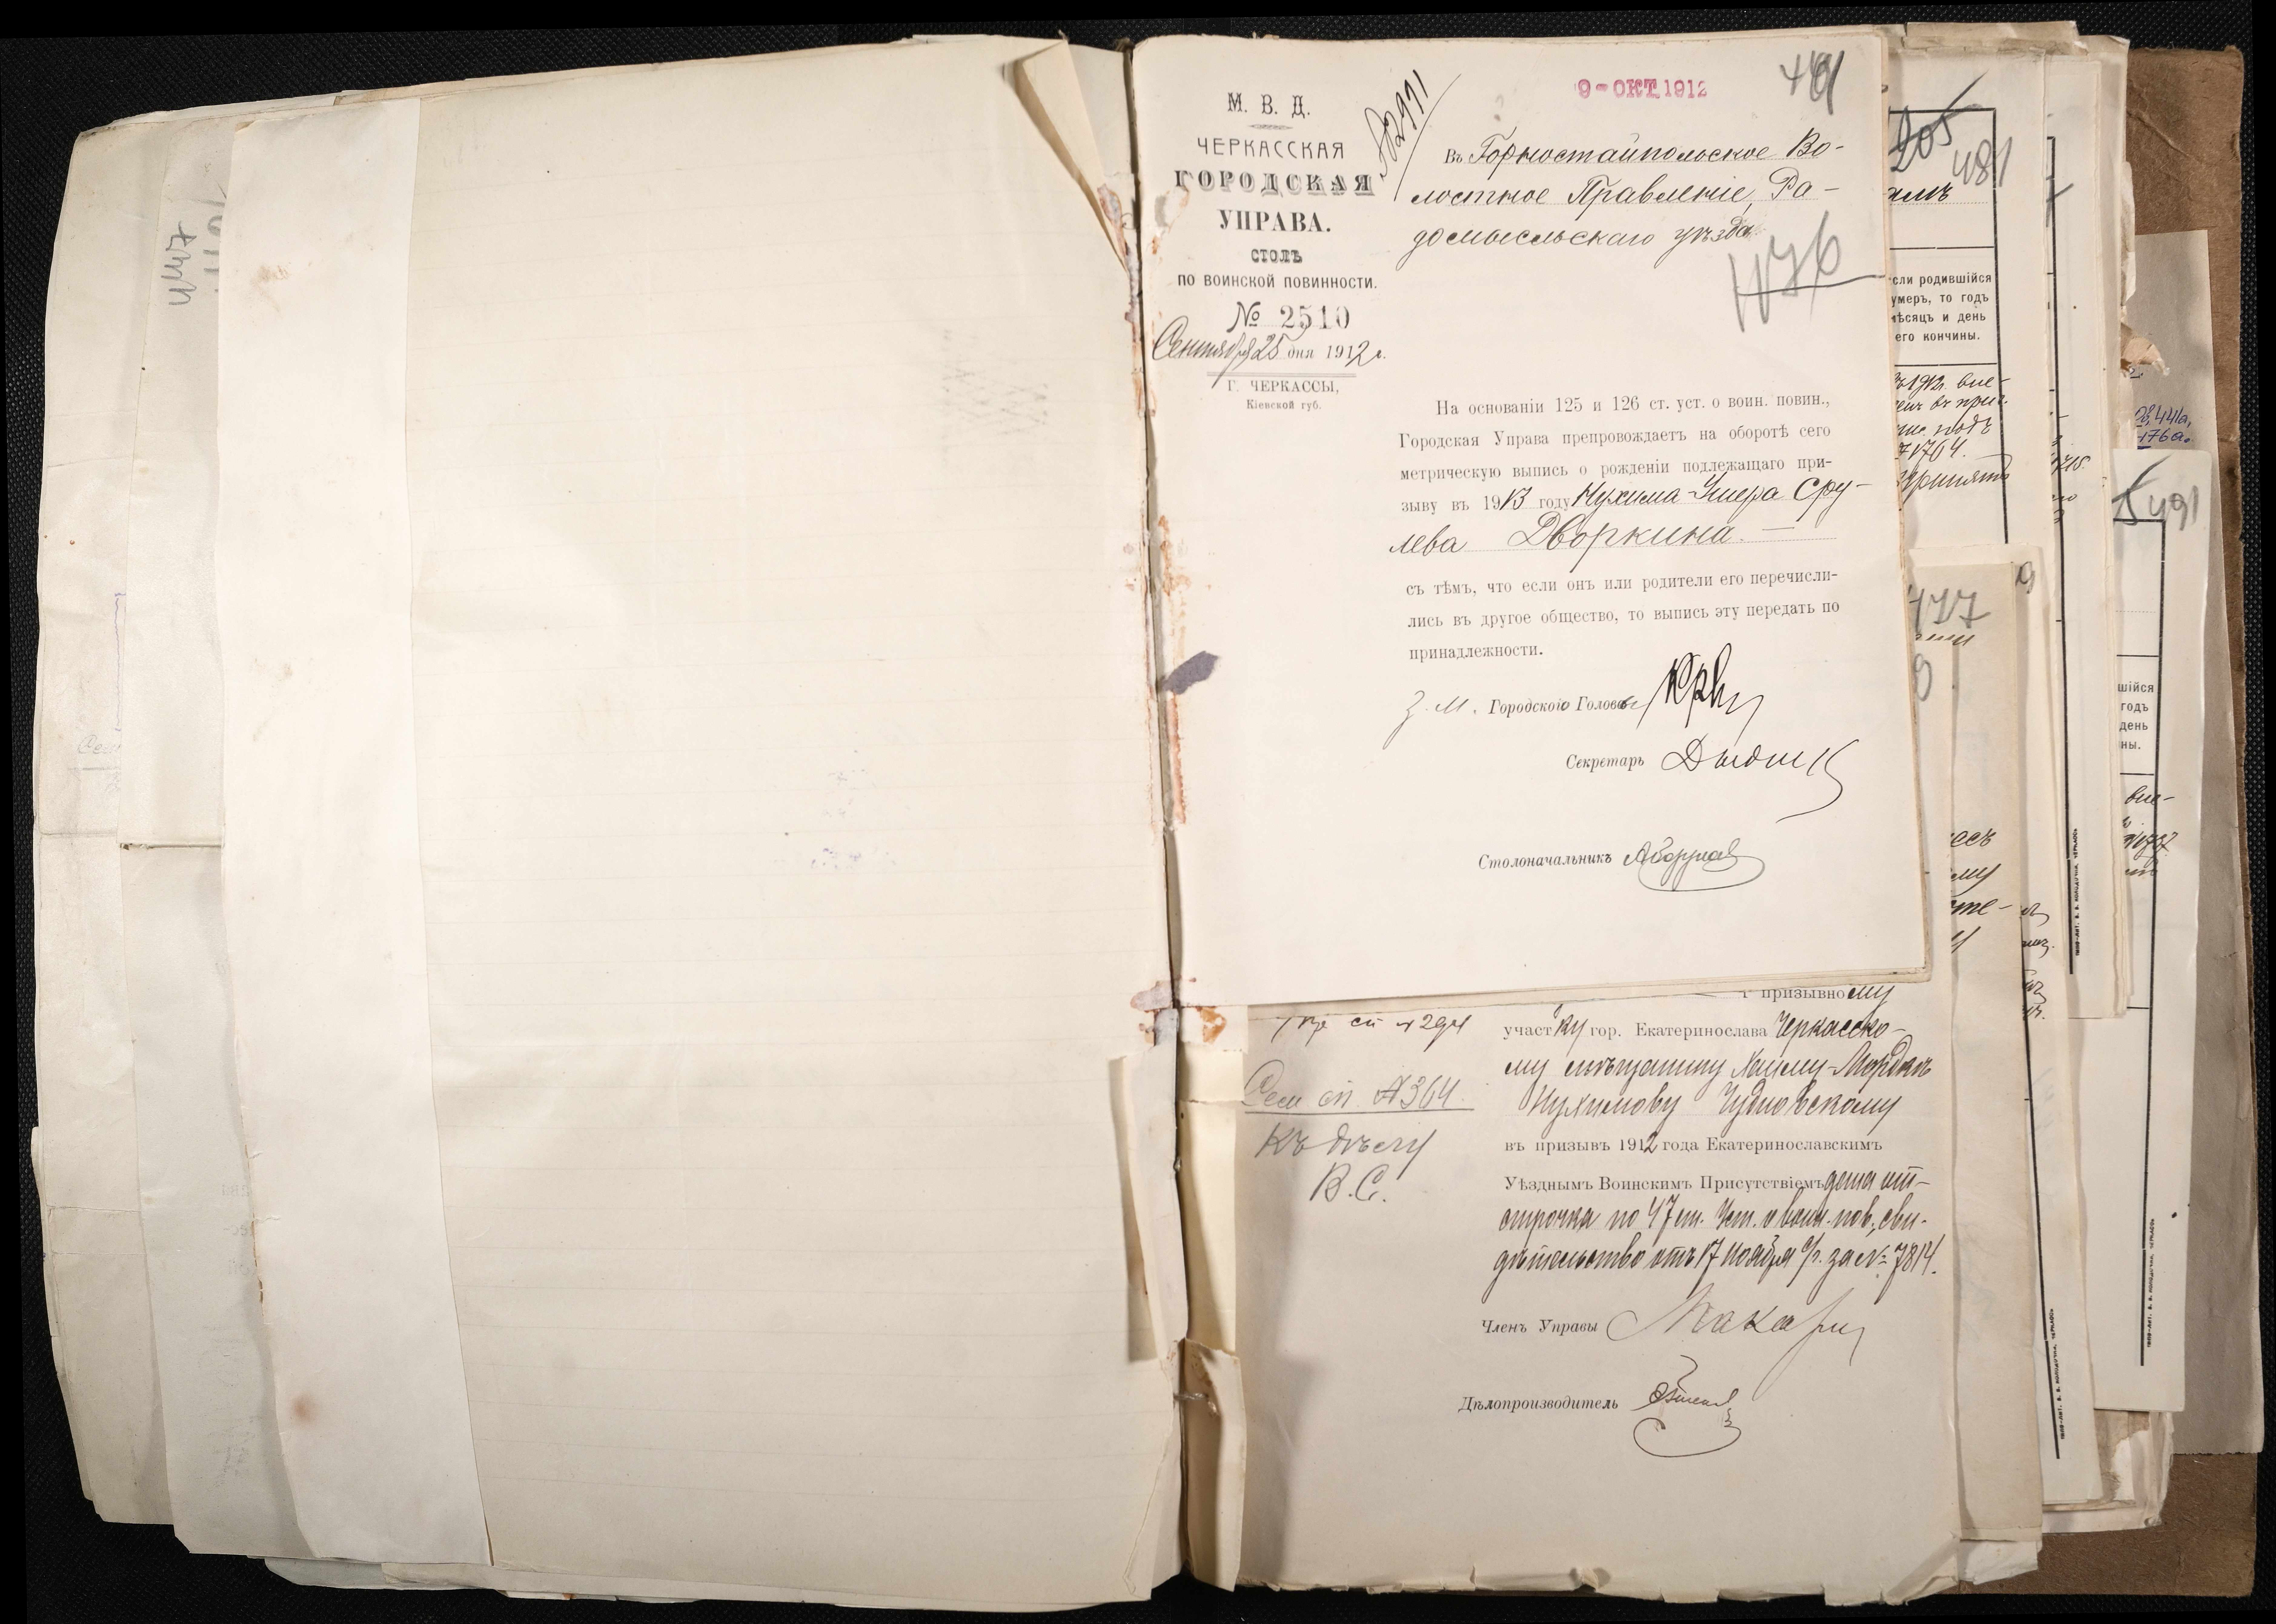 М. В. Д.
ЧЕРКАССКАЯ
ГОРОДСКАЯ
УПРАВА.
СТОЛЪ
ПО ВОИНСКОЙ ПОВИННОСТИ.
№ 2510
Сентября 25 дня 1912 г.
Г. ЧЕРКАССЫ,
Кіевской губ.
9-ОКТ.1912
Въ Горностайпольское Во-
лостное Правленіе, Ра-
домысльскаго уѣзда
476
На основаніи 125 и 126 ст. уст. о воин. повин.,
Городская Управа препровождаетъ на оборотѣ сего
метрическую выпись о рожденіи подлежащаго при-
зыву въ 1913 году Нухима-Умера Сру-
лева Дворкина. —
съ тѣмъ, что если онъ или родители его перечисли-
лись въ другое общество, то выпись эту передать по
принадлежности.
З. М. Городского Головы
Секретарь
Столоначальникъ
призывному
участку гор. Екатеринослава Черкасско-
му мѣщанину Хаиму-Мордко
Нухимову Чудновскому
въ призывъ 1912 года Екатеринославскимъ
Уѣзднымъ Воинскимъ Присутствіемъ дана от-
срочка по 47 ст. Уст. о воин. пов., сви-
дѣтельство отъ 17 Ноября с/г. за № 7814.
Сем сп. №364.
Къ дѣлу
В. С.
Членъ Управы
Дѣлопроизводитель
205
481
если родившійся
умеръ, то годъ
мѣсяцъ и день
его кончины.
477
491
шійся
годъ
день
ны.